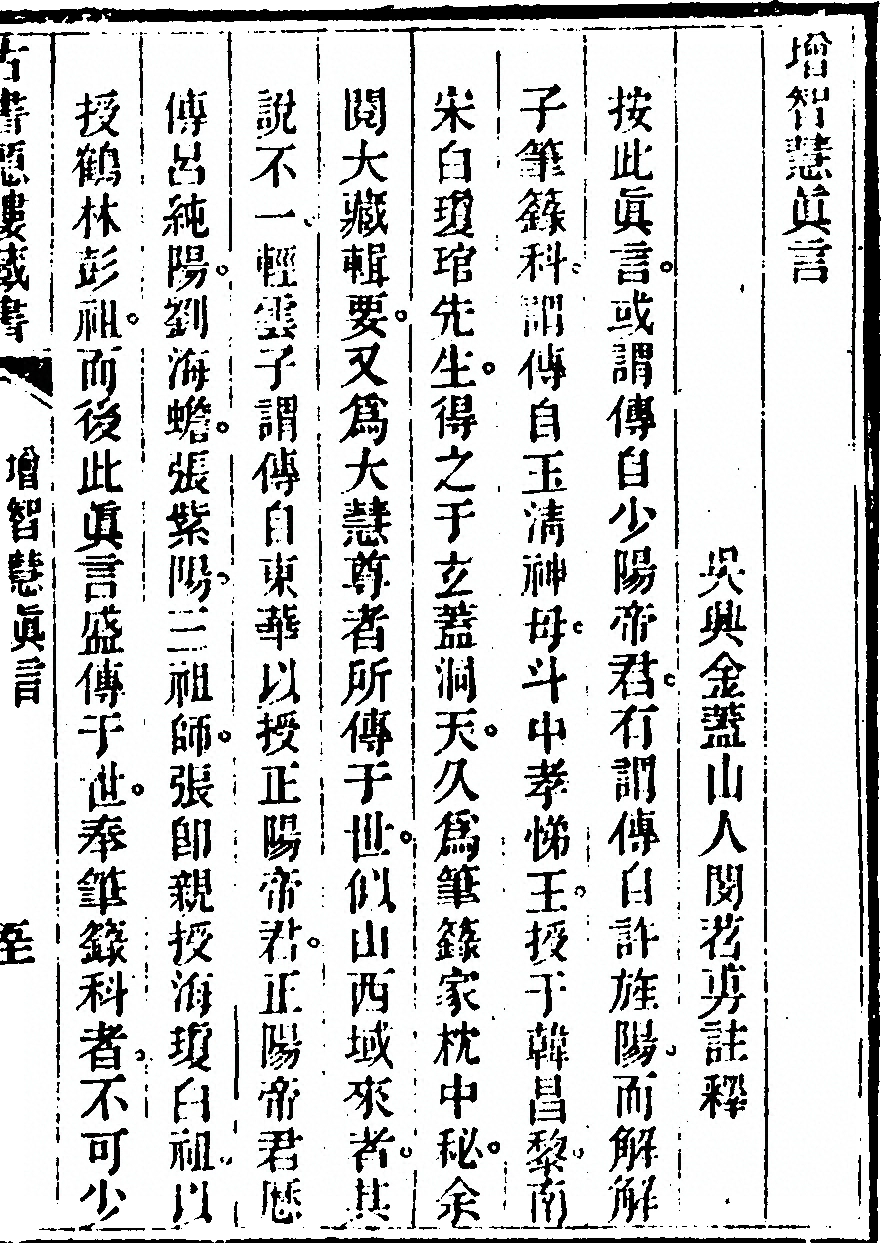 增智慧眞言
吳興金蓋山人閔苕旉註釋
按此眞言。或謂傳自少陽帝君。有謂傳自許旌陽、而解解
子筆籙科。謂傳自玉淸神母。斗中孝悌王。授于韓昌黎。南
宋白瓊琯先生。得之于玄蓋洞天。久爲筆籙家枕中秘。余
閱大藏輯要。又爲大慧尊者所傳于世。似山西域來者。其
說不一、輕雲子謂傳自東華以授正陽帝君。正陽帝君歷
傳呂純陽。劉海蟾。張紫陽、三祖師。張卽親授海瓊白祖。以
授鶴林彭祖。而後此眞言盛傳于世。奉筆籙科者、不可少
古書隱樓藏書
增智慧眞言